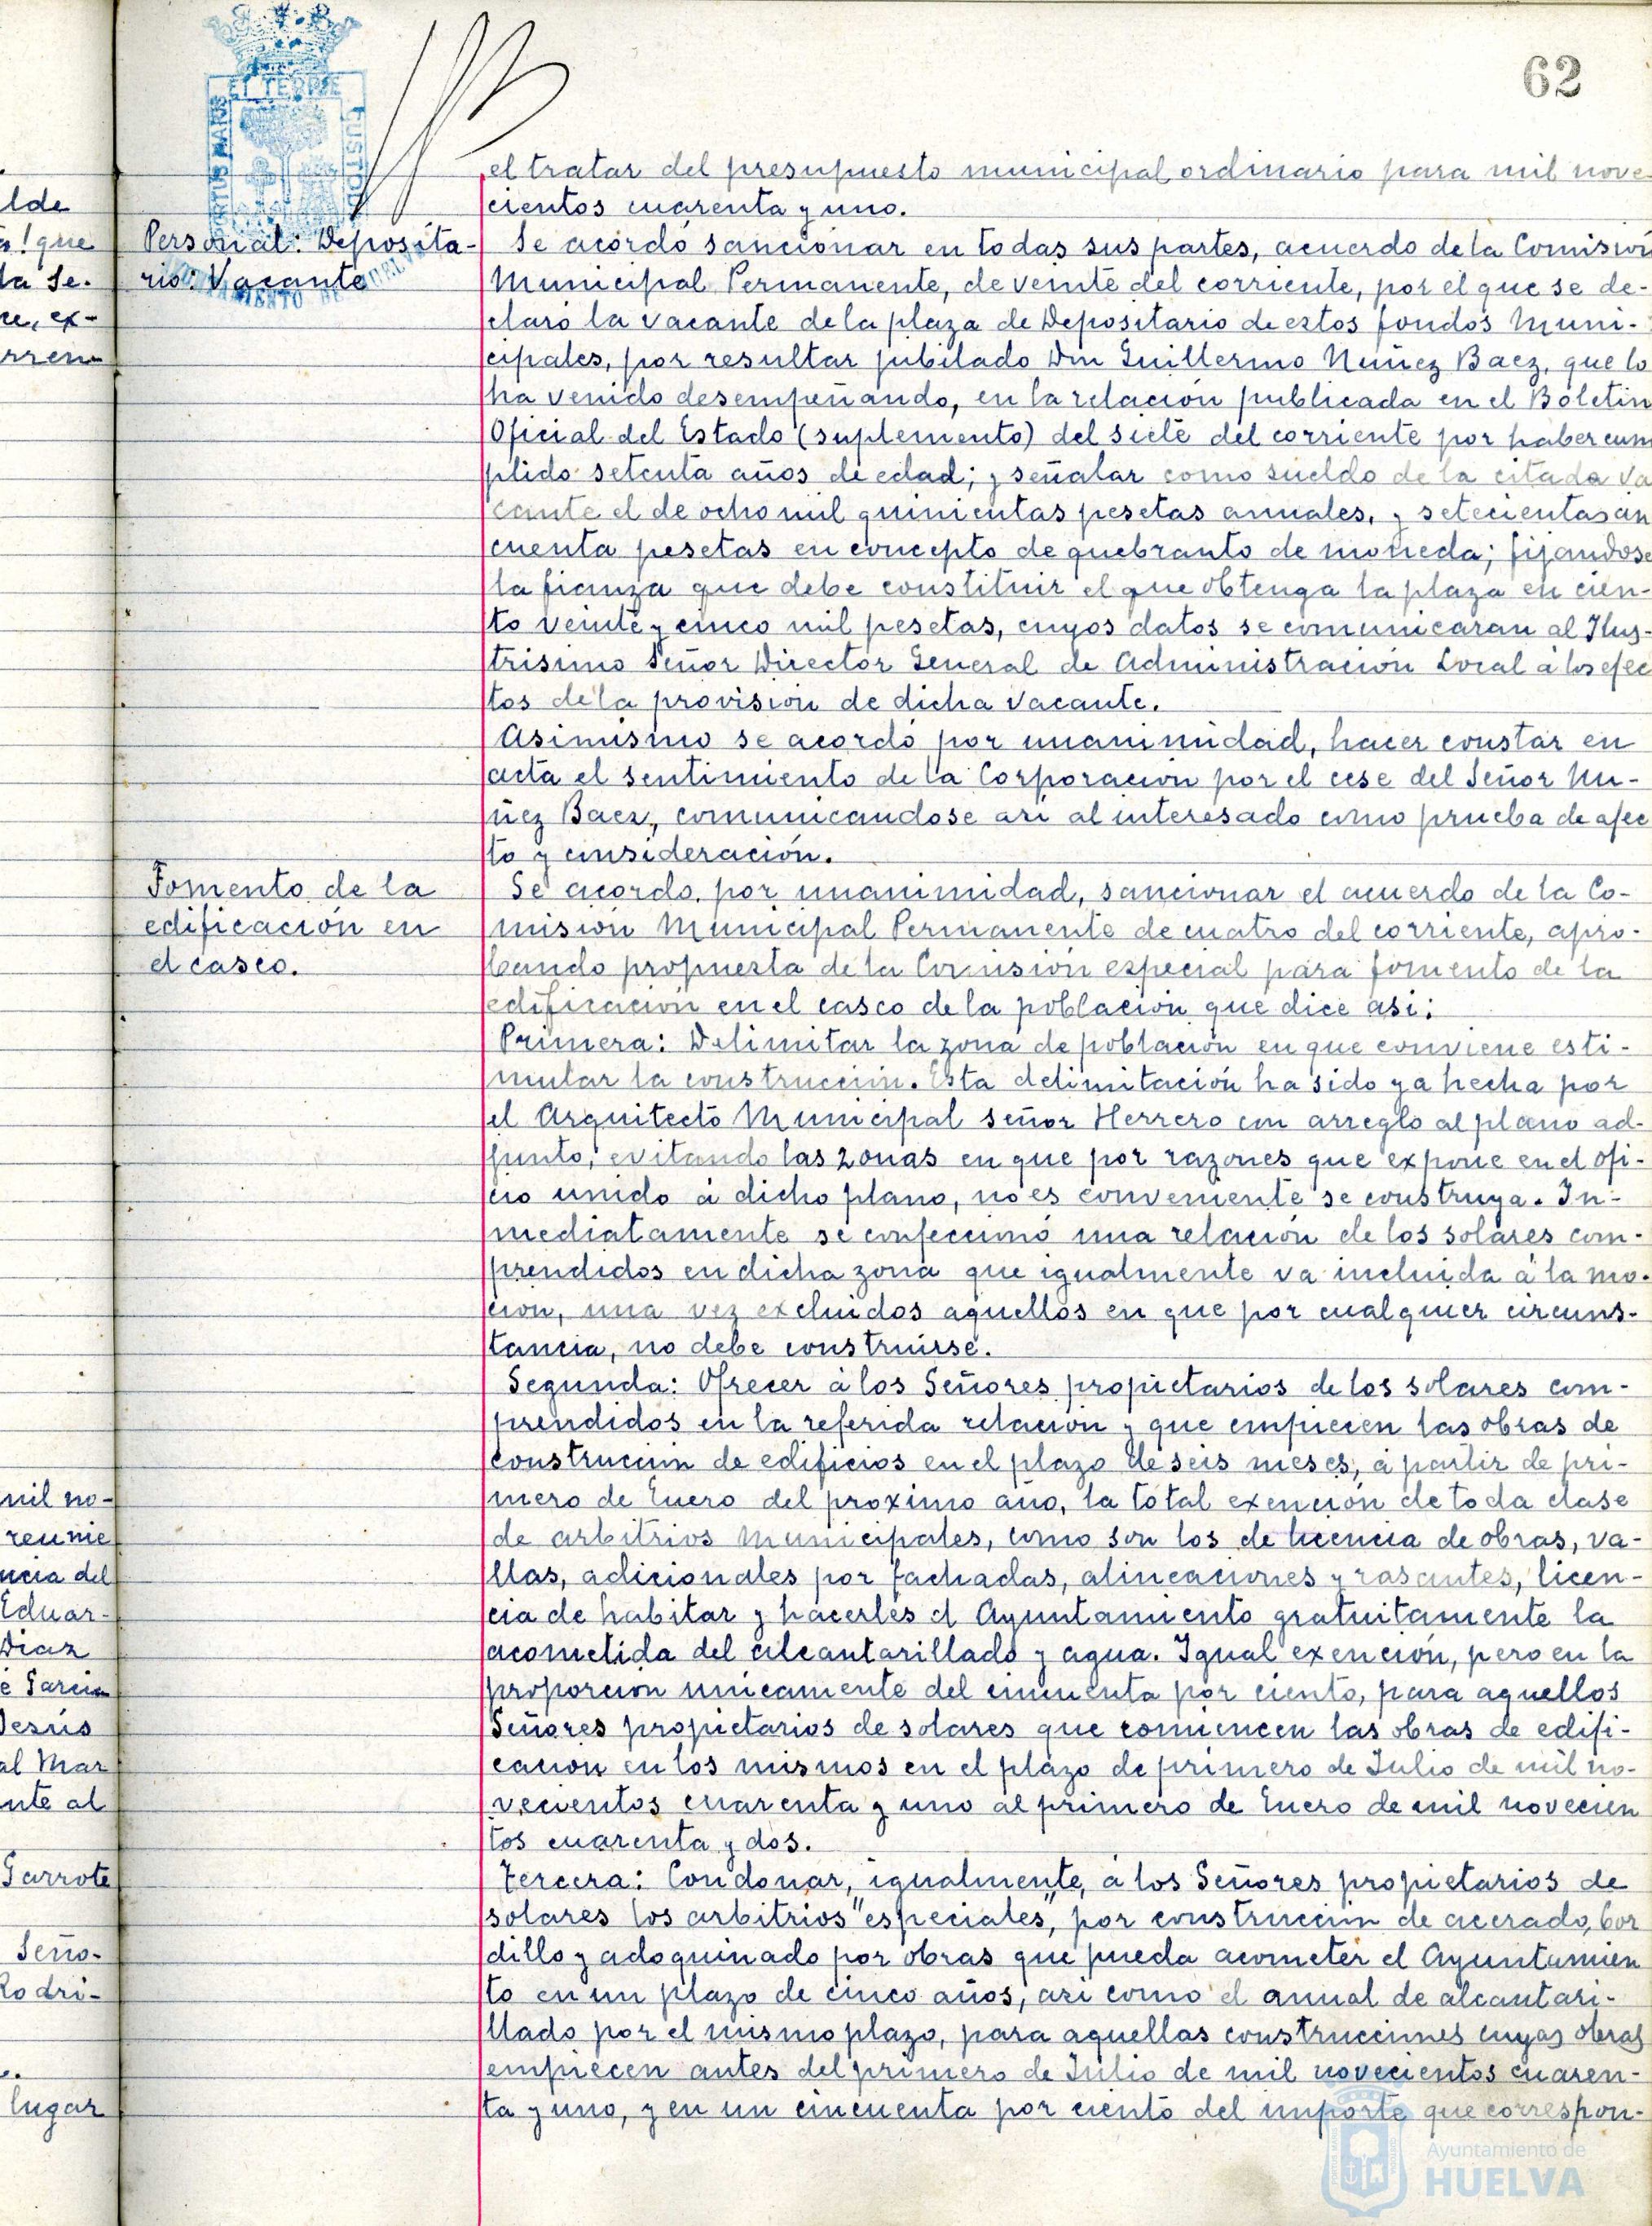 62
el tratar del presupuesto municipal ordinario para mil nove-
cientos cuarenta y uno.
Personal: Deposita-
rio: Vacante
Se acordó sancionar en todas sus partes, acuerdo de la Comisión
Municipal Permanente, de veinte del corriente, por el que se de-
claró la vacante de la plaza de Depositario de estos fondos Muni-
cipales, por resultar jubilado Don Guillermo Nuñez Baez, que lo
ha venido desempeñando, en la relación publicada en el Boletin
Oficial del Estado (suplemento) del siete del corriente por haber cum
plido setenta años de edad; y señalar como sueldo de la citada va
cante el de ocho mil quinientas pesetas anuales, y setecientas cin
cuenta pesetas en concepto de quebranto de moneda; fijandose
la fianza que debe constituir el que obtenga la plaza en cien-
to veinte y cinco mil pesetas, cuyos datos se comunicaran al Ilus-
trisimo Señor Director General de Administración Local á los efec
tos de la provisión de dicha vacante.
Asimismo se acordó por unanimidad, hacer constar en
acta el sentimiento de la Corporación por el cese del Señor Nu-
ñez Baez, comunicandose asi al interesado como prueba de afec
to y consideración.
Fomento de la
edificación en
el casco.
Se acordo, por unanimidad, sancionar el acuerdo de la Co-
misión Municipal Permanente de cuatro del corriente, apro-
bando propuesta de la Comisión especial para fomento de la
edificación en el casco de la población que dice asi:
Primera: Delimitar la zona de población en que conviene esti-
mular la construcción. Esta delimitación ha sido ya hecha por
el Arquitecto Municipal señor Herrero con arreglo al plano ad-
junto, evitando las zonas en que por razones que expone en el ofi-
cio unido á dicho plano, no es conveniente se construya. In-
mediatamente se confeccionó una relación de los solares com-
prendidos en dicha zona que igualmente va incluida á la mo-
cion, una vez excluidos aquellos en que por cualquier circuns-
tancia, no debe construirse.
Segunda: Ofrecer á los Señores propietarios de los solares com-
prendidos en la referida relación y que empiecen las obras de
construccion de edificios en el plazo de seis meses, á partir de pri-
mero de Enero del proximo año, la total exención de toda clase
de arbitrios Municipales, como son los de licencia de obras, va-
llas, adicionales por fachadas, alineaciones y rasantes, licen-
cia de habitar y hacerles el Ayuntamiento gratuitamente la
acometida del alcantarillado y agua. Igual exención, pero en la
proporcion unicamente del cincuenta por ciento, para aquellos
Señores propietarios de solares que comiencen las obras de edifi-
cacion en los mismos en el plazo de primero de Julio de mil no-
vecientos cuarenta y uno al primero de Enero de mil novecien
tos cuarenta y dos.
Tercera: Condonar, igualmente, a los Señores propietarios de
solares los arbitrios "especiales", por construccion de acerado, bor
dillo y adoquinado por obras que pueda acometer el Ayuntamien
to en un plazo de cinco años, asi como el anual de alcantari-
llado por el mismo plazo, para aquellas construcciones cuyas obras
empiecen antes del primero de Julio de mil novecientos cuaren-
ta y uno, y en un cincuenta por ciento del importe que correspon-
lde
que
la Se-
mil no-
reunie
ncia del
Eduar-
Diaz
e Garcia
Jesus
al Mar
nte al
Garrote
Seño-
Rodri-
lugar
Ayuntamiento de
HUELVA